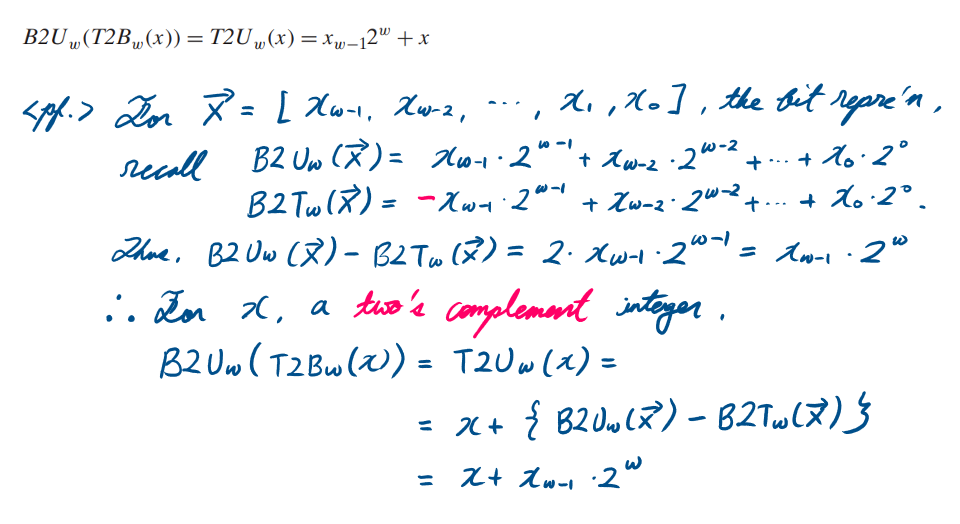 B2U_w(T2B_w(x)) = T2U_w(x) = x_{w−1}2^w + x
<pf.> For x⃗ = [ x_{w-1}, x_{w-2}, ⋯ , x_1, x_0 ], the bit repre'n,
recall B2U_w(x⃗) = x_{w-1}·2^{w-1} + x_{w-2}·2^{w-2} + ⋯ + x_0·2^0
B2T_w(x⃗) = -x_{w-1}·2^{w-1} + x_{w-2}·2^{w-2} + ⋯ + x_0·2^0.
Thus, B2U_w(x⃗) - B2T_w(x⃗) = 2·x_{w-1}·2^{w-1} = x_{w-1}·2^w
∴ For x, a two's complement integer,
B2U_w(T2B_w(x)) = T2U_w(x) =
= x + { B2U_w(x⃗) - B2T_w(x⃗) }
= x + x_{w-1}·2^w